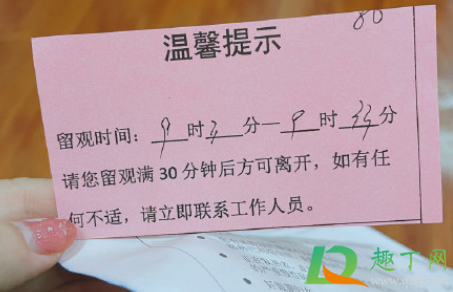 80
温馨提示
留观时间：9时3分—9时33分
请您留观满30分钟后方可离开，如有任
何不适，请立即联系工作人员。
趣丁网